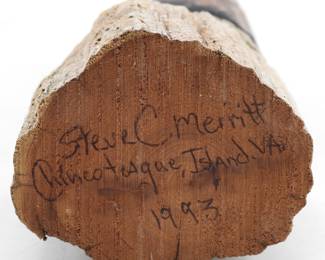 Steve C Merritt
Chincoteague Island VA
1993